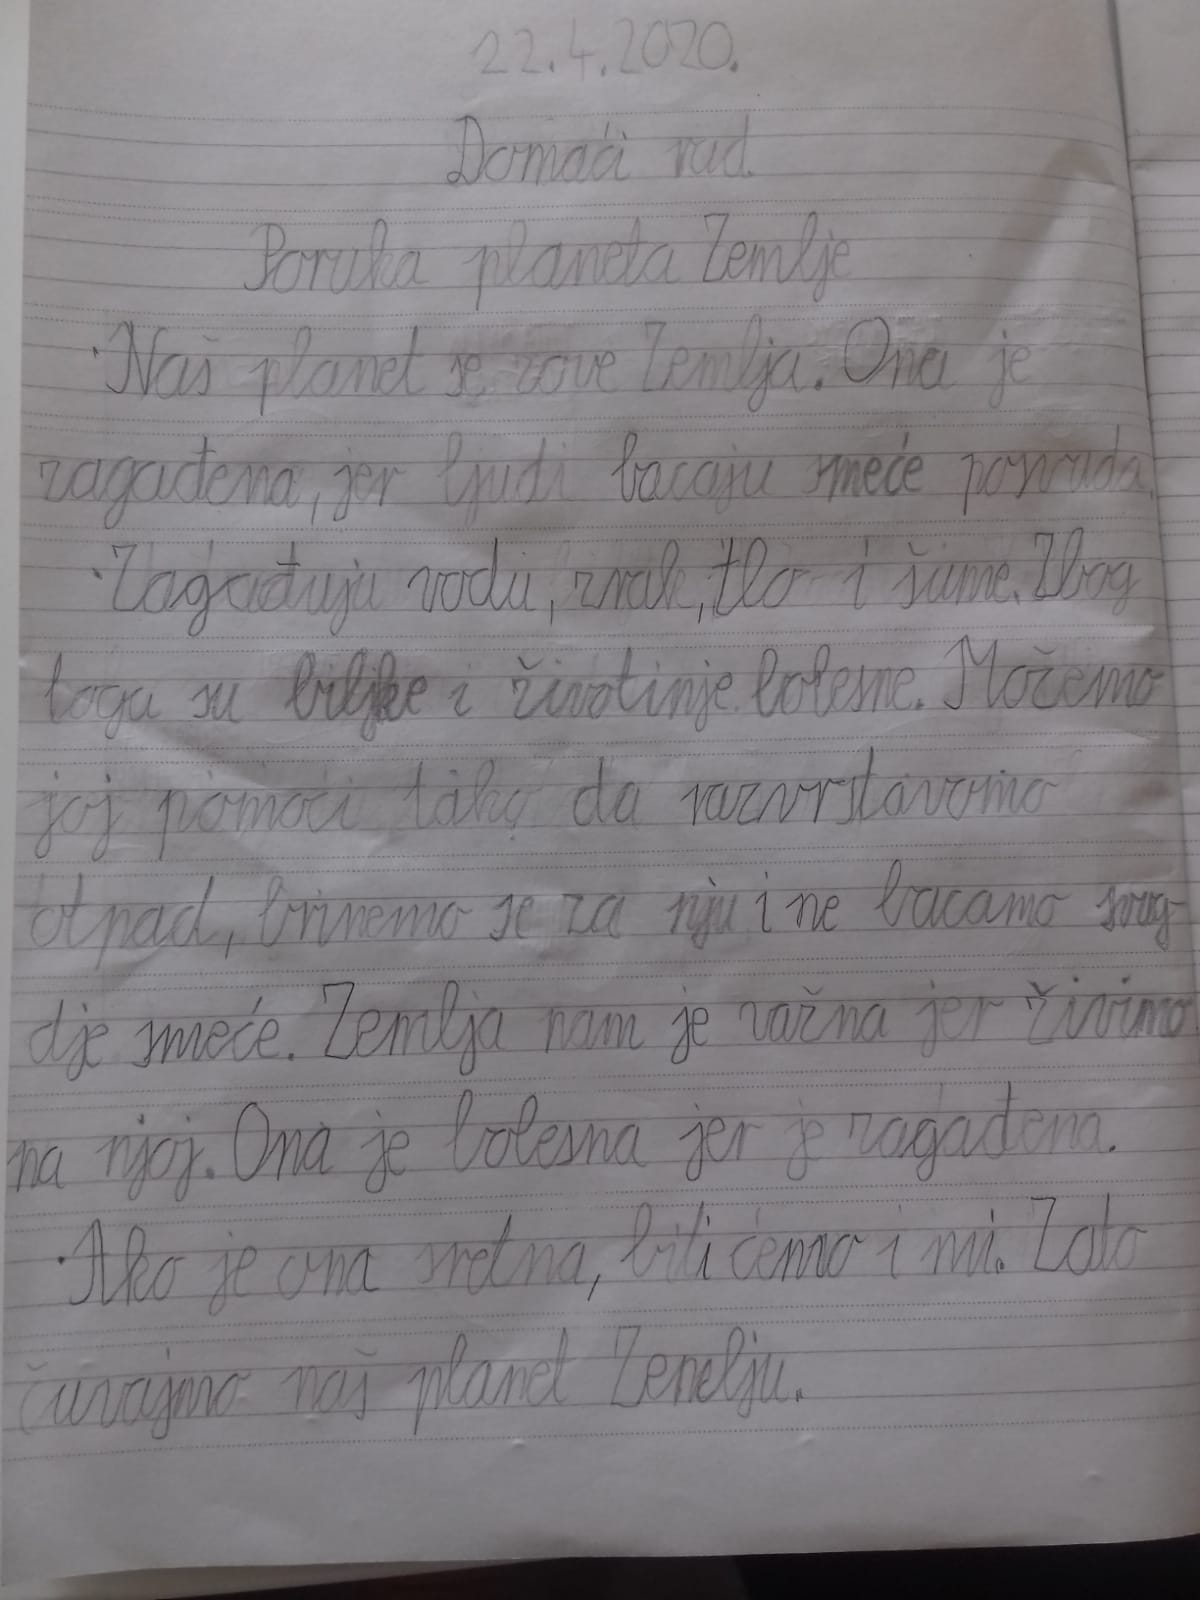 22.4.2020.
Domaći rad
Poruka planeta Zemlje
Naš planet se zove Zemlja. Ona je
zagađena, jer ljudi bacaju smeće posvuda.
Zagađuju vodu, zrak, tlo i šume. Zbog
toga su biljke i životinje bolesne. Možemo
joj pomoći tako da razvrstavamo
otpad, brinemo se za nju i ne bacamo svug-
dje smeće. Zemlja nam je važna jer živimo
na njoj. Ona je bolesna jer je zagađena.
Ako je ona sretna, biti ćemo i mi. Zato
čuvajmo naš planet Zemlju.